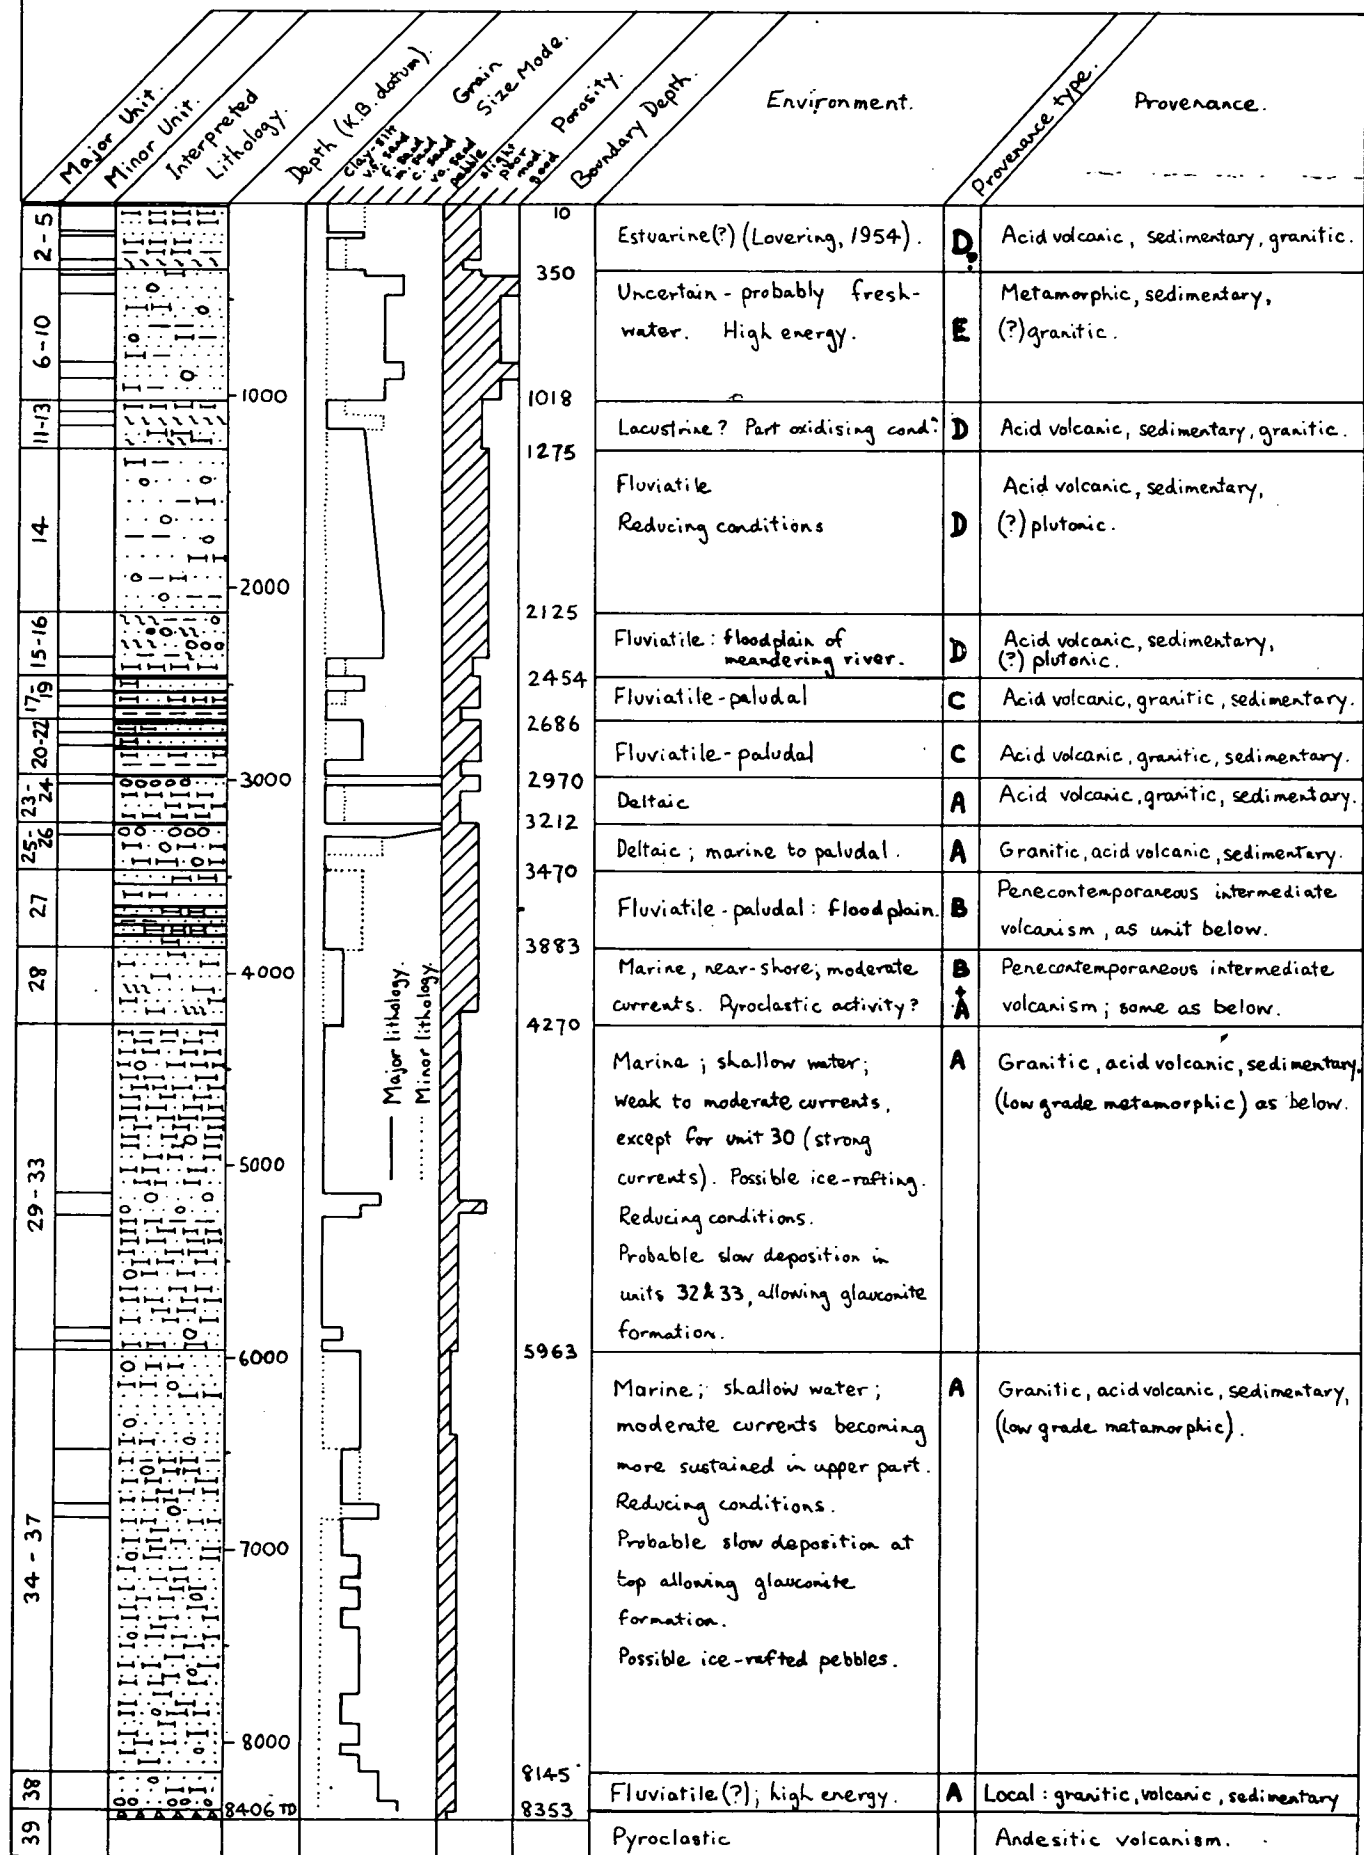 Major Unit.
Minor Unit.
Interpreted
Lithology.
Depth (K.B. datum).
Grain
Size Mode.
clay-silt
v.f. sand
f. sand
m. sand
c. sand
v.c. sand
pebble
Porosity.
slight
poor
mod.
good
Boundary Depth.
Environment.
Provenance type.
Provenance.
10
2-5
Estuarine(?) (Lovering, 1954).
D?
Acid volcanic, sedimentary, granitic.
350
6-10
Uncertain - probably fresh-
water. High energy.
E
Metamorphic, sedimentary,
(?) granitic.
1000
1018
11-13
Lacustrine? Part oxidising cond?
D
Acid volcanic, sedimentary, granitic.
1275
14
Fluviatile
Reducing conditions
D
Acid volcanic, sedimentary,
(?) plutonic.
2000
2125
15-16
Fluviatile: floodplain of
meandering river.
D
Acid volcanic, sedimentary,
(?) plutonic.
2454
17-19
Fluviatile-paludal
C
Acid volcanic, granitic, sedimentary.
2686
20-22
Fluviatile-paludal
C
Acid volcanic, granitic, sedimentary.
3000
2970
23-24
Deltaic
A
Acid volcanic, granitic, sedimentary.
3212
25-26
Deltaic; marine to paludal.
A
Granitic, acid volcanic, sedimentary.
3470
27
Fluviatile-paludal: floodplain.
B
Penecontemporaneous intermediate
volcanism, as unit below.
3883
28
4000
Marine, near-shore; moderate
currents. Pyroclastic activity?
B
+
A
Penecontemporaneous intermediate
volcanism; some as below.
4270
Major lithology.
Minor lithology.
29-33
5000
Marine; shallow water;
weak to moderate currents,
except for unit 30 (strong
currents). Possible ice-rafting.
Reducing conditions.
Probable slow deposition in
units 32 & 33, allowing glauconite
formation.
A
Granitic, acid volcanic, sedimentary.
(low grade metamorphic) as below.
5963
6000
34-37
7000
8000
Marine; shallow water;
moderate currents becoming
more sustained in upper part.
Reducing conditions.
Probable slow deposition at
top allowing glauconite
formation.
Possible ice-rafted pebbles.
A
Granitic, acid volcanic, sedimentary,
(low grade metamorphic).
8145
38
Fluviatile(?); high energy.
A
Local: granitic, volcanic, sedimentary
8406 TD
8353
39
Pyroclastic
Andesitic volcanism.